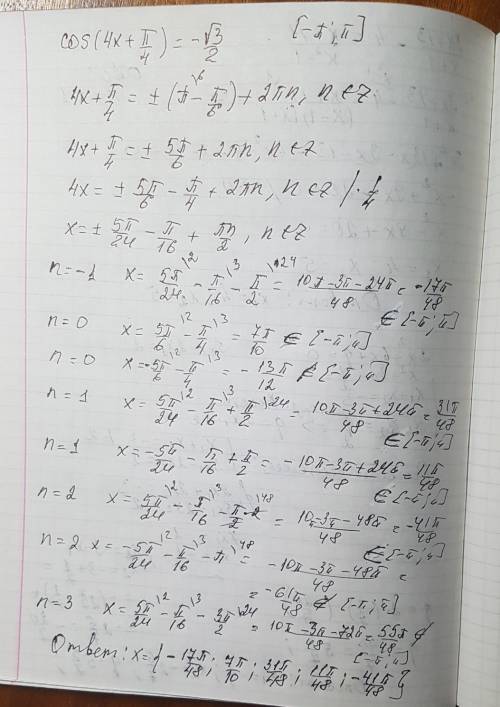 cos(4x + π/4) = -√3/2 [-π; π]
4x + π/4 = ± (π\6 - π/6) + 2πn, n ∈ Z
4x + π/4 = ± 5π/6 + 2πn, n ∈ Z
4x = ± 5π/6 - π/4 + 2πn, n ∈ Z / · 1/4
x = ± 5π/24 - π/16 + πn/2, n ∈ Z
n = -1 x = 5π/24\2 - π/16\3 - π/2\24 = 10π - 3π - 24π/48 = -17π/48
∈ [-π; π]
n = 0 x = 5π/6\2 - π/4\3 = 7π/10 ∈ [-π; π]
n = 0 x = -5π/6\2 - π/4\3 = -13π/12 ∉ [-π; π]
n = 1 x = 5π/24\2 - π/16\3 + π/2\24 = 10π - 3π + 24π/48 = 31π/48
∈ [-π; π]
n = 1 x = -5π/24 - π/16 + π/2 = -10π - 3π + 24π/48 = 11π/48
∈ [-π; π]
n = 2 x = 5π/24\2 - π/16\3 - π/2·2\48 = 10π - 3π - 48π/48 = -41π/48
∈ [-π; π]
n = 2 x = -5π/24\2 - π/16\3 - π\48 = -10π - 3π - 48π/48 =
= -61π/48 ∉ [-π; π]
n = 3 x = 5π/24\2 - π/16\3 - 3π/2\24 = 10π - 3π - 72π/48 = 55π/48 ∉
[-π; π]
Ответ: x = { -17π/48; 7π/10; 31π/48; 11π/48; -41π/48 }